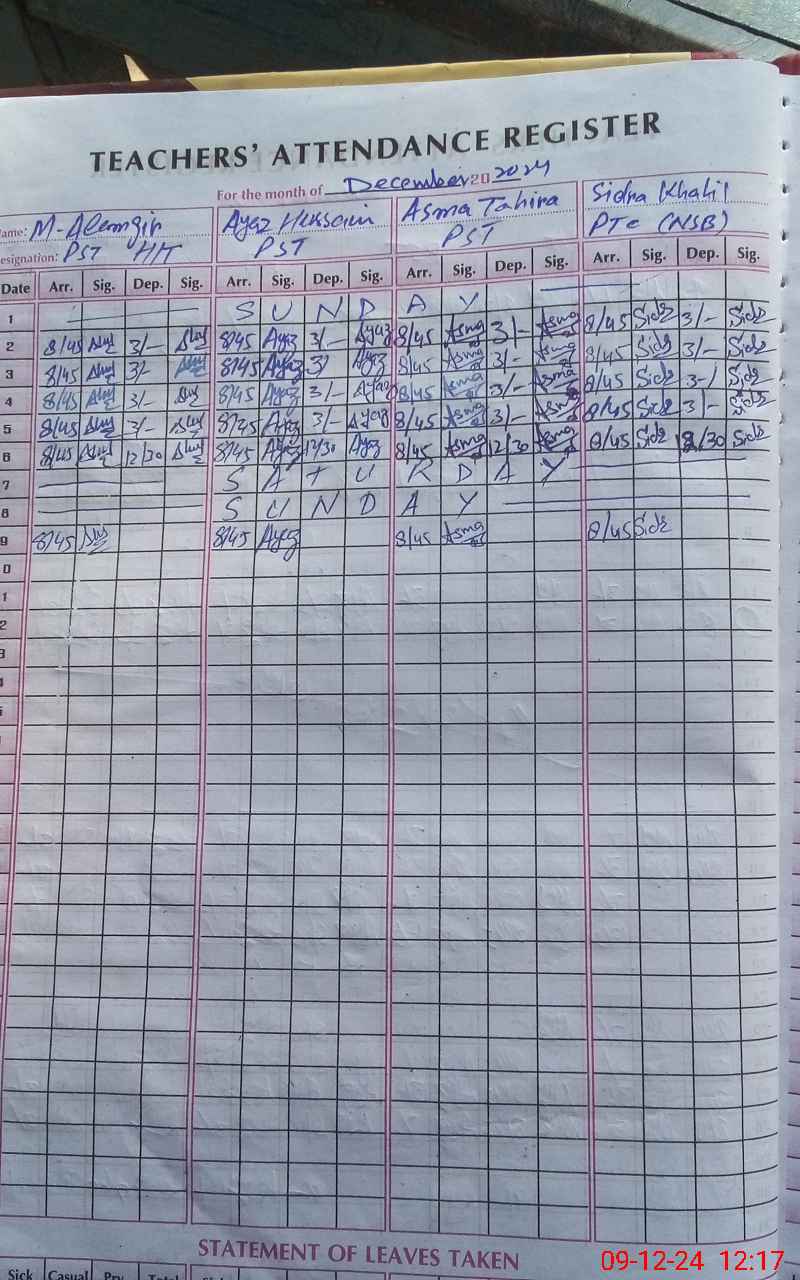 TEACHERS' ATTENDANCE REGISTER
For the month of December 20 2024
ame: M-Alamgir Ayaz Hussain Asma Tahira Sidra Khalil
esignation: PST HIT PST PST PTC (NSB)
Date Arr. Sig. Dep. Sig. Arr. Sig. Dep. Sig. Arr. Sig. Dep. Sig. Arr. Sig. Dep. Sig.
1 S U N D A Y
2 8/45 3/- 8/45 Ayaz 3/- Ayaz 8/45 Asma 3/- Asma 8/45 Sidr 3/- Sidr
3 8/45 3/- 8/45 Ayaz 3/ Ayaz 8/45 Asma 3/- Asma 8/45 Sidr 3/- Sidr
4 8/45 3/- 8/45 Ayaz 3/- Ayaz 8/45 Asma 3/- Asma 8/45 Sidr 3-/ Sidr
5 8/45 3/- 8/45 Ayaz 3/- Ayaz 8/45 Asma 3/- Asma 8/45 Sidr 3/- Sidr
6 8/45 12/30 8/45 Ayaz 12/30 Ayaz 8/45 Asma 12/30 Asma 8/45 Sidr 12/30 Sidr
7 S A T U R D A Y
8 S U N D A Y
9 8/45 8/45 Ayaz 8/45 Asma 8/45 Sidr
0
1
2
3
STATEMENT OF LEAVES TAKEN
Sick Casual
09-12-24 12:17